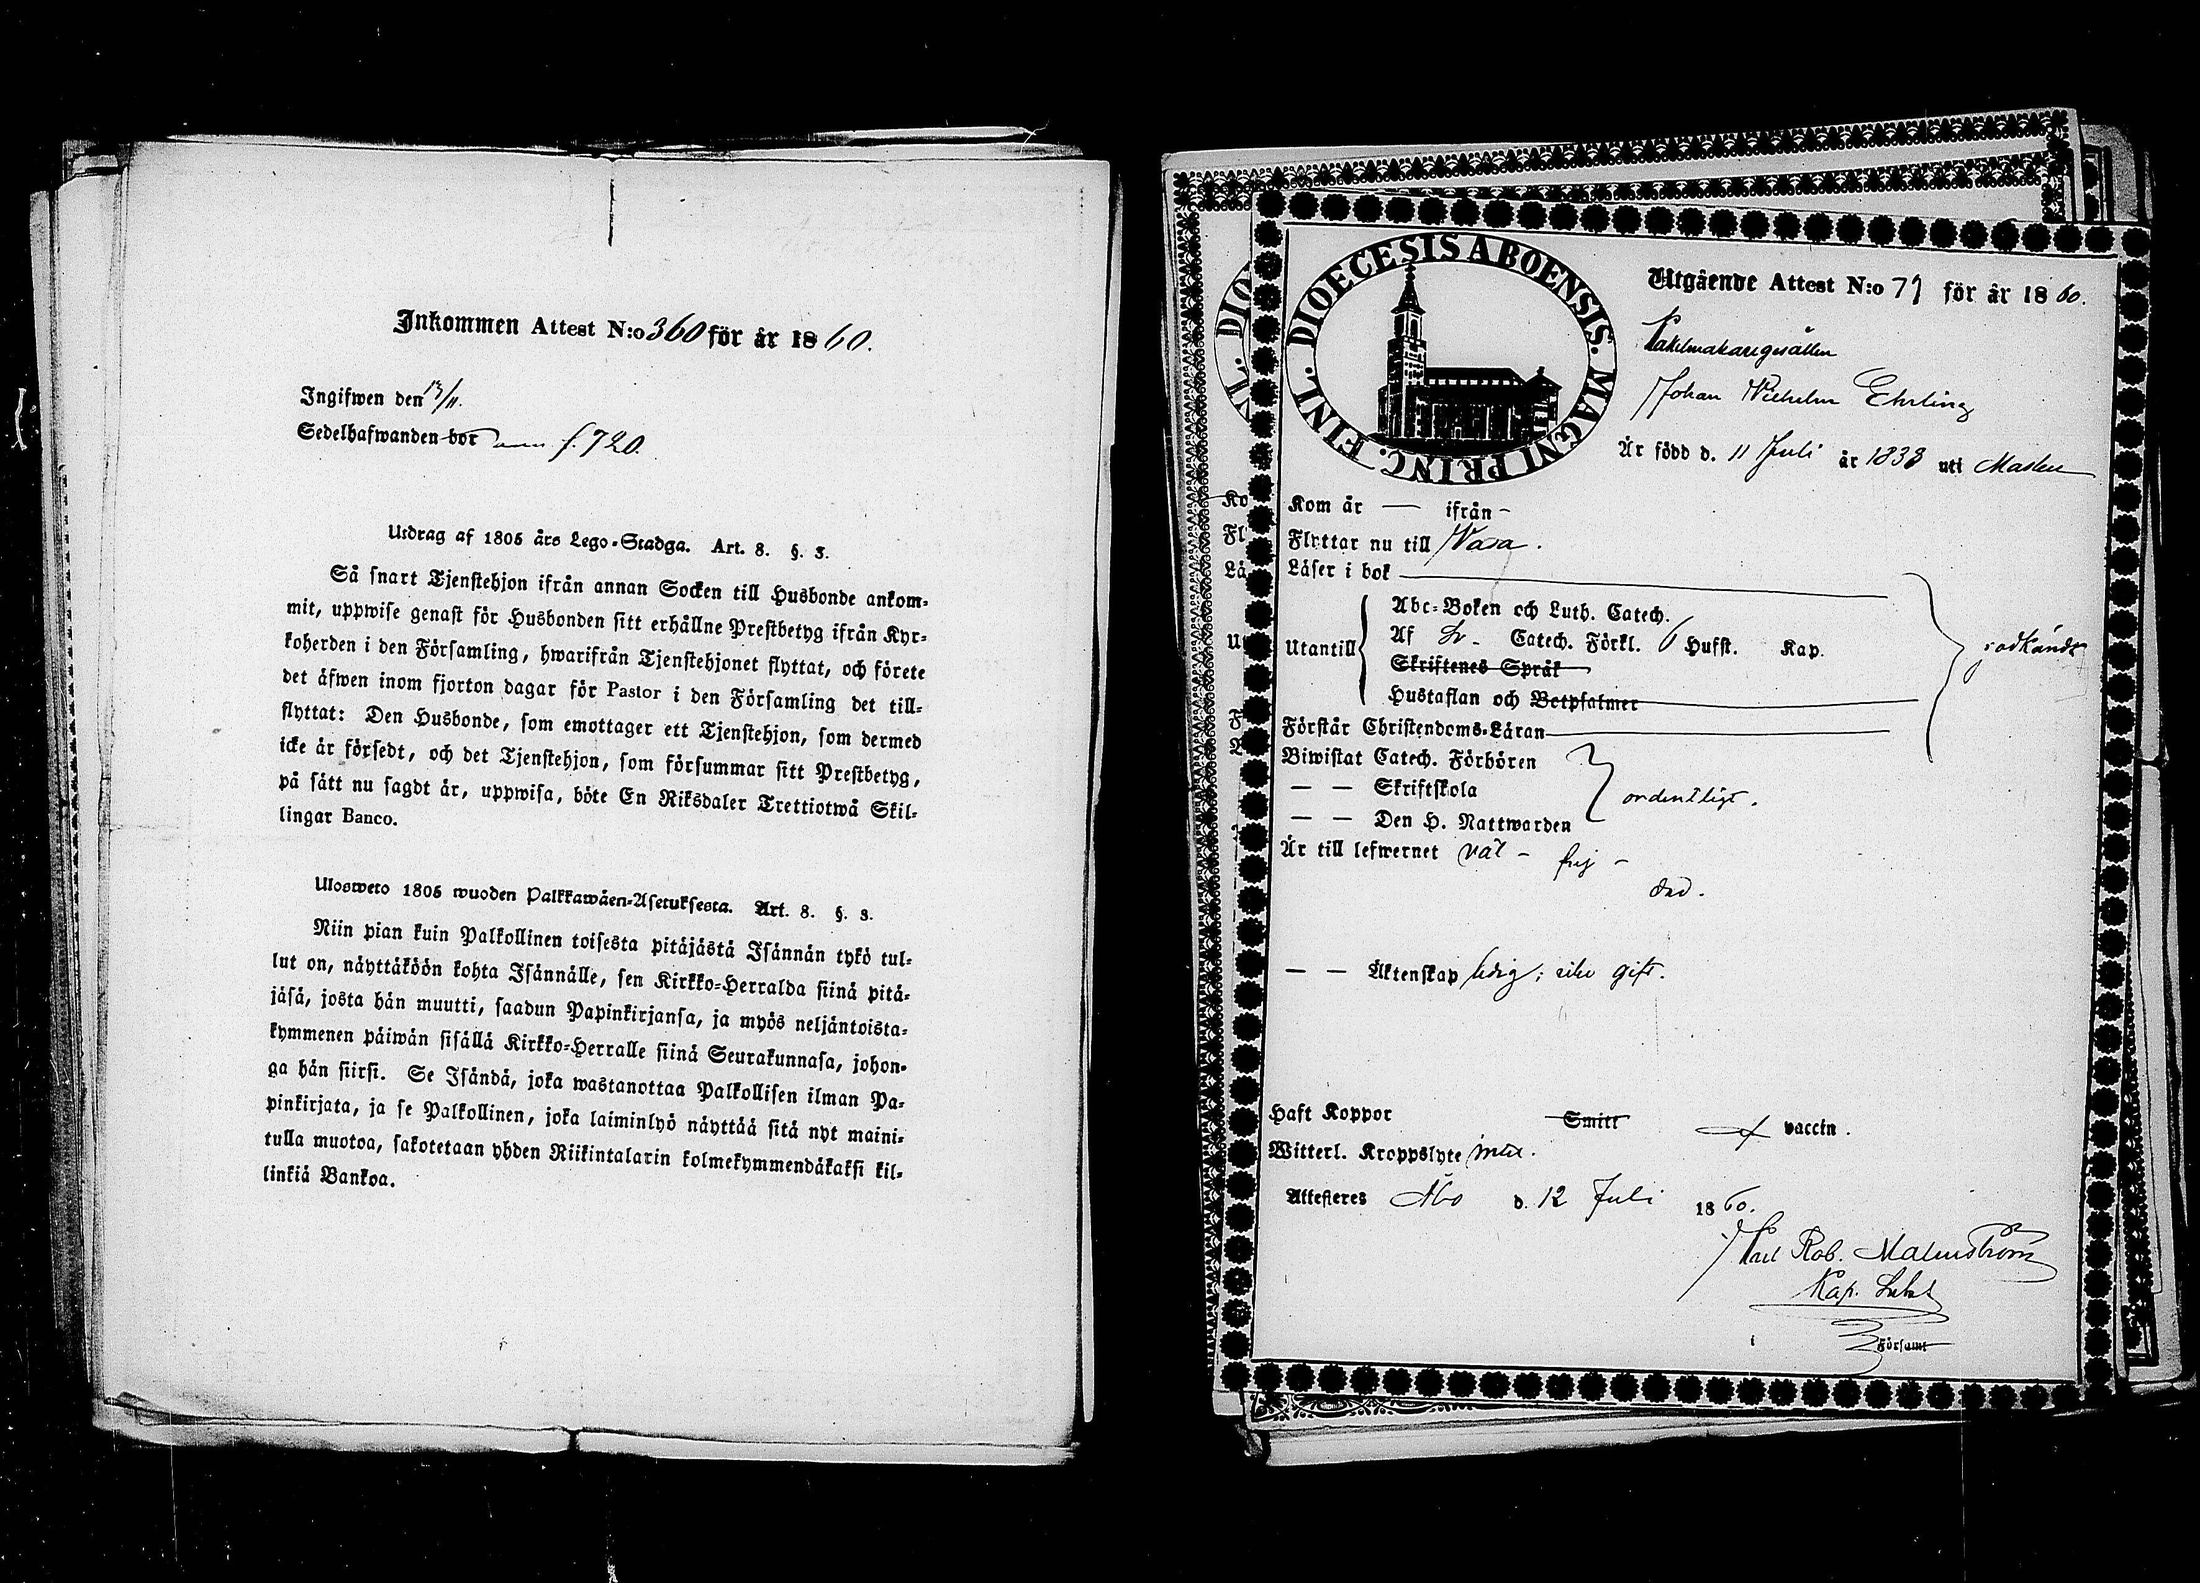 Inkommen Attest N:o 360 för år 1860.
Ingifwen den 13/11.
Sedelhafwanden bor f. 720.
Utdrag af 1805 års Lego-Stadga. Art. 8. §. 3.
Så snart Tjenstehjon ifrån annan Socken till Husbonde ankom-
mit, uppwise genast för Husbonden sitt erhållne Prestbetyg ifrån Kyr-
koherden i den Församling, hwarifrån Tjenstehjonet flyttat, och förete
det äfwen inom fjorton dagar för Pastor i den Församling det till-
flyttat: Den Husbonde, som emottager ett Tjenstehjon, som dermed
icke är försedt, och det Tjenstehjon, som försummar sitt Prestbetyg,
på sätt nu sagdt är, uppwisa, böte En Riksdaler Trettiotwå Skil-
lingar Banco.
Ulosweto 1805 wuoden Palkkawäen-Asetuksesta. Art. 8. §. 3.
Niin pian kuin Palkollinen toisesta pitäjästä Isännän tykö tul-
lut on, näyttäköön kohta Isännälle, sen Kirkko-Herralda siinä pitä-
jäsä, josta hän muutti, saadun Papinkirjansa, ja myös neljäntoista-
kymmenen päiwän sisällä Kirkko-Herralle siinä Seurakunnasa, johon-
ga hän siirsi. Se Isändä, joka wastanottaa Palkollisen ilman Pa-
pinkirjata, ja se Palkollinen, joka laiminlyö näyttää sitä nyt maini-
tulla muotoa, sakotetaan yhden Riikintalarin kolmekymmendäkaksi kil-
linkiä Bankoa.
DIOECESIS ABOENSIS. MAGNI PRINC. FINL.
Utgående Attest N:o 79 för år 1860.
Kakelmakaregesällen
Johan Wilhelm Ehrling
Är född d. 11 Juli år 1838 uti Masku
Kom år — ifrån -
Flyttar nu till Wasa.
Läser i bok
Abc-Boken och Luth. Catech.
Utantill Af Sv. Catech. Förkl. 6 Hufst. Kap.
Skriftenes Språk
Hustaflan och Betpsalmer
godkändt
Förstår Christendoms-Läran
Biwistat Catech. Förhören
— — Skriftskola
ordentligt.
— — Den H. Nattwarden
Är till lefwernet väl - frej -
dad.
— — Äktenskap ledig; icke gift.
Haft Koppor Smitt vaccin.
Witterl. Kroppslyte intet.
Attesteres Åbo d. 12 Juli 1860.
Karl Rob. Malmström
Kap.
i Församl